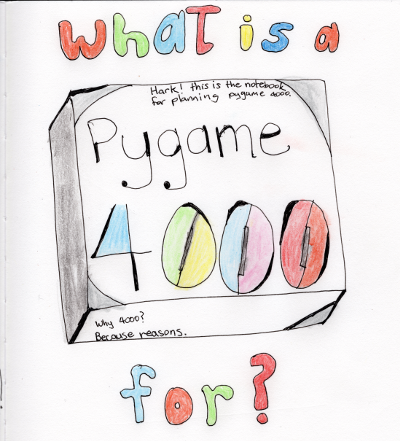 WhaT is a
Hark! this is the notebook
for planning pygame 4000.
Pygame
4000
Why 4000?
Because reasons.
for?